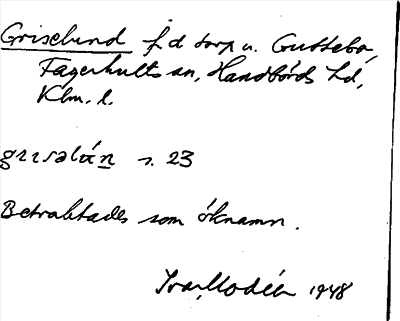 Griselund f.d torp u. Guttebo,
Fagerhults sn, Handbörds hd,
Klm. l.
grisəlún s. 23
Betraktades som öknamn.
Ivar Modéer 1948